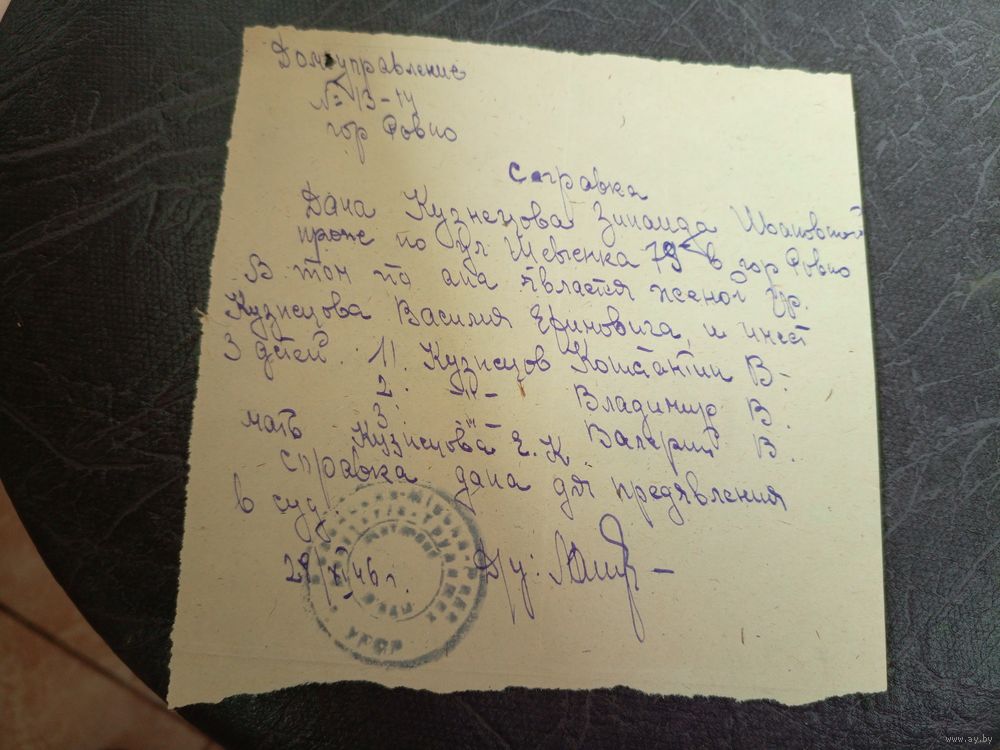 Домоуправление
№ 13-14
гор Ровно
Справка
Дана Кузнецова Зинаида Ивановной
прож по ул Шевченка 79 в гор Ровно
В том то она явлается женой гр.
Кузнецова Василия Ефимовига, и имеет
3 дтей. 1!. Кузнецов Констатин В-
2. -"- Владимир В.
3. -"- Валерий В.
мать Кузнецова Е. К.
справка дана для предявления
в суд.
29/XI 46 г. Д/у:
УРСР
www.ay.by